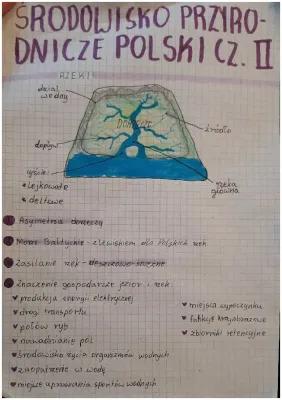 ŚRODOWISKO PRZYRO-
DNICZE POLSKI CZ. II
RZEKI
dział
wodny
DORZECZE
źródło
dopływ
ujście
• lejkowate
• deltowe
rzeka
główna
Asymetria dorzeczy
Morze Bałtyckie - zlewiskiem dla Polskich rzek
Zasilanie rzek - deszczowo-śnieżne
Znaczenie gospodarcze jezior i rzek
♥ produkcja energii elektrycznej
♥ drogi transportu
♥ połów ryb
♥ nawadnianie pól
♥ środowisko życia organizmów wodnych
♥ zaopatrzenie w wodę
♥ miejsce uprawiania sportów wodnych
♥ miejsca wypoczynku
♥ krajobrazowe
♥ zbiorniki retencyjne